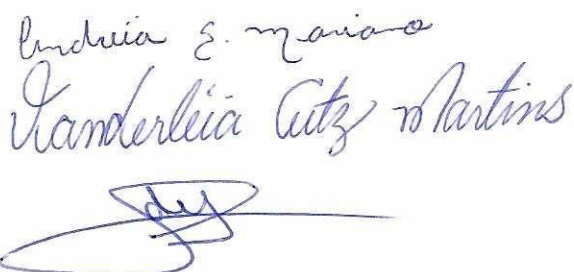 Andreia E. Mariano
Vanderléia Cutz Martins